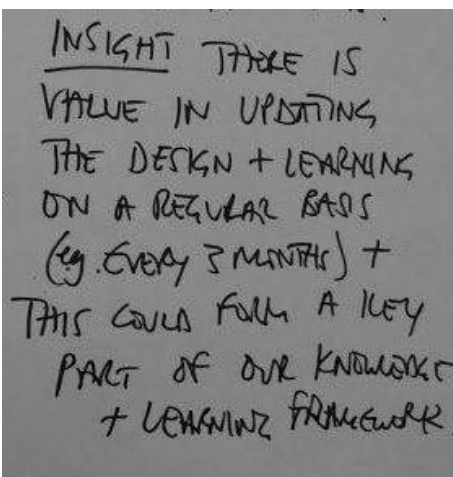 INSIGHT THERE IS
VALUE IN UPDATING
THE DESIGN + LEARNING
ON A REGULAR BASIS
(eg. EVERY 3 MONTHS) +
THIS COULD FORM A KEY
PART OF OUR KNOWLEDGE
+ LEARNING FRAMEWORK